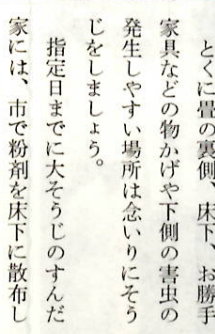 とくに畳の裏側、床下、お勝手
家具などの物かげや下側の害虫の
発生しやすい場所は念いりにそう
じをしましょう。
指定日までに大そうじのすんだ
家には、市で粉剤を床下に散布し